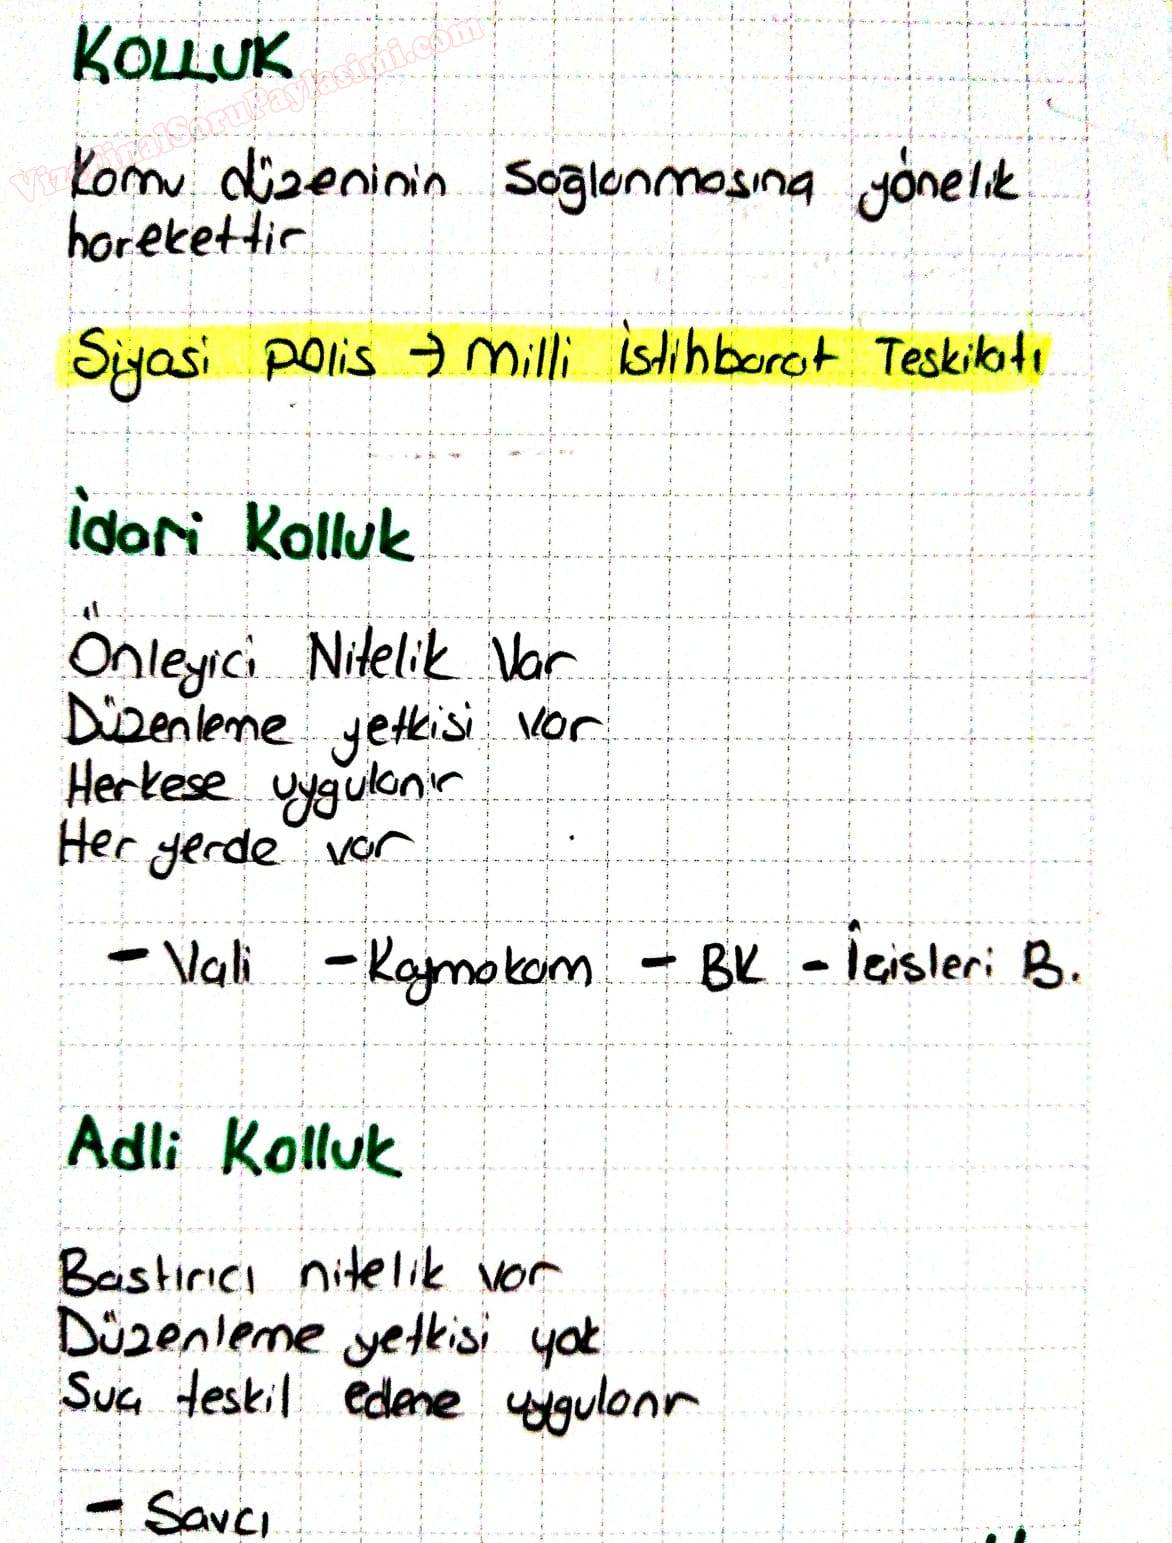 KOLLUK
VizeFinalSoruPaylasimi.com
Kamu düzeninin Sağlanmasına yönelik
harekettir
Siyasi polis → Milli İstihbarat Teskilatı
İdari Kolluk
Önleyici Nitelik Var
Düzenleme yetkisi var
Herkese uygulanır
Her yerde var
- Vali - Kaymakam - BK - İçisleri B.
Adli Kolluk
Bastırıcı nitelik var
Düzenleme yetkisi yok
Suç teskil edene uygulanır
- Savcı